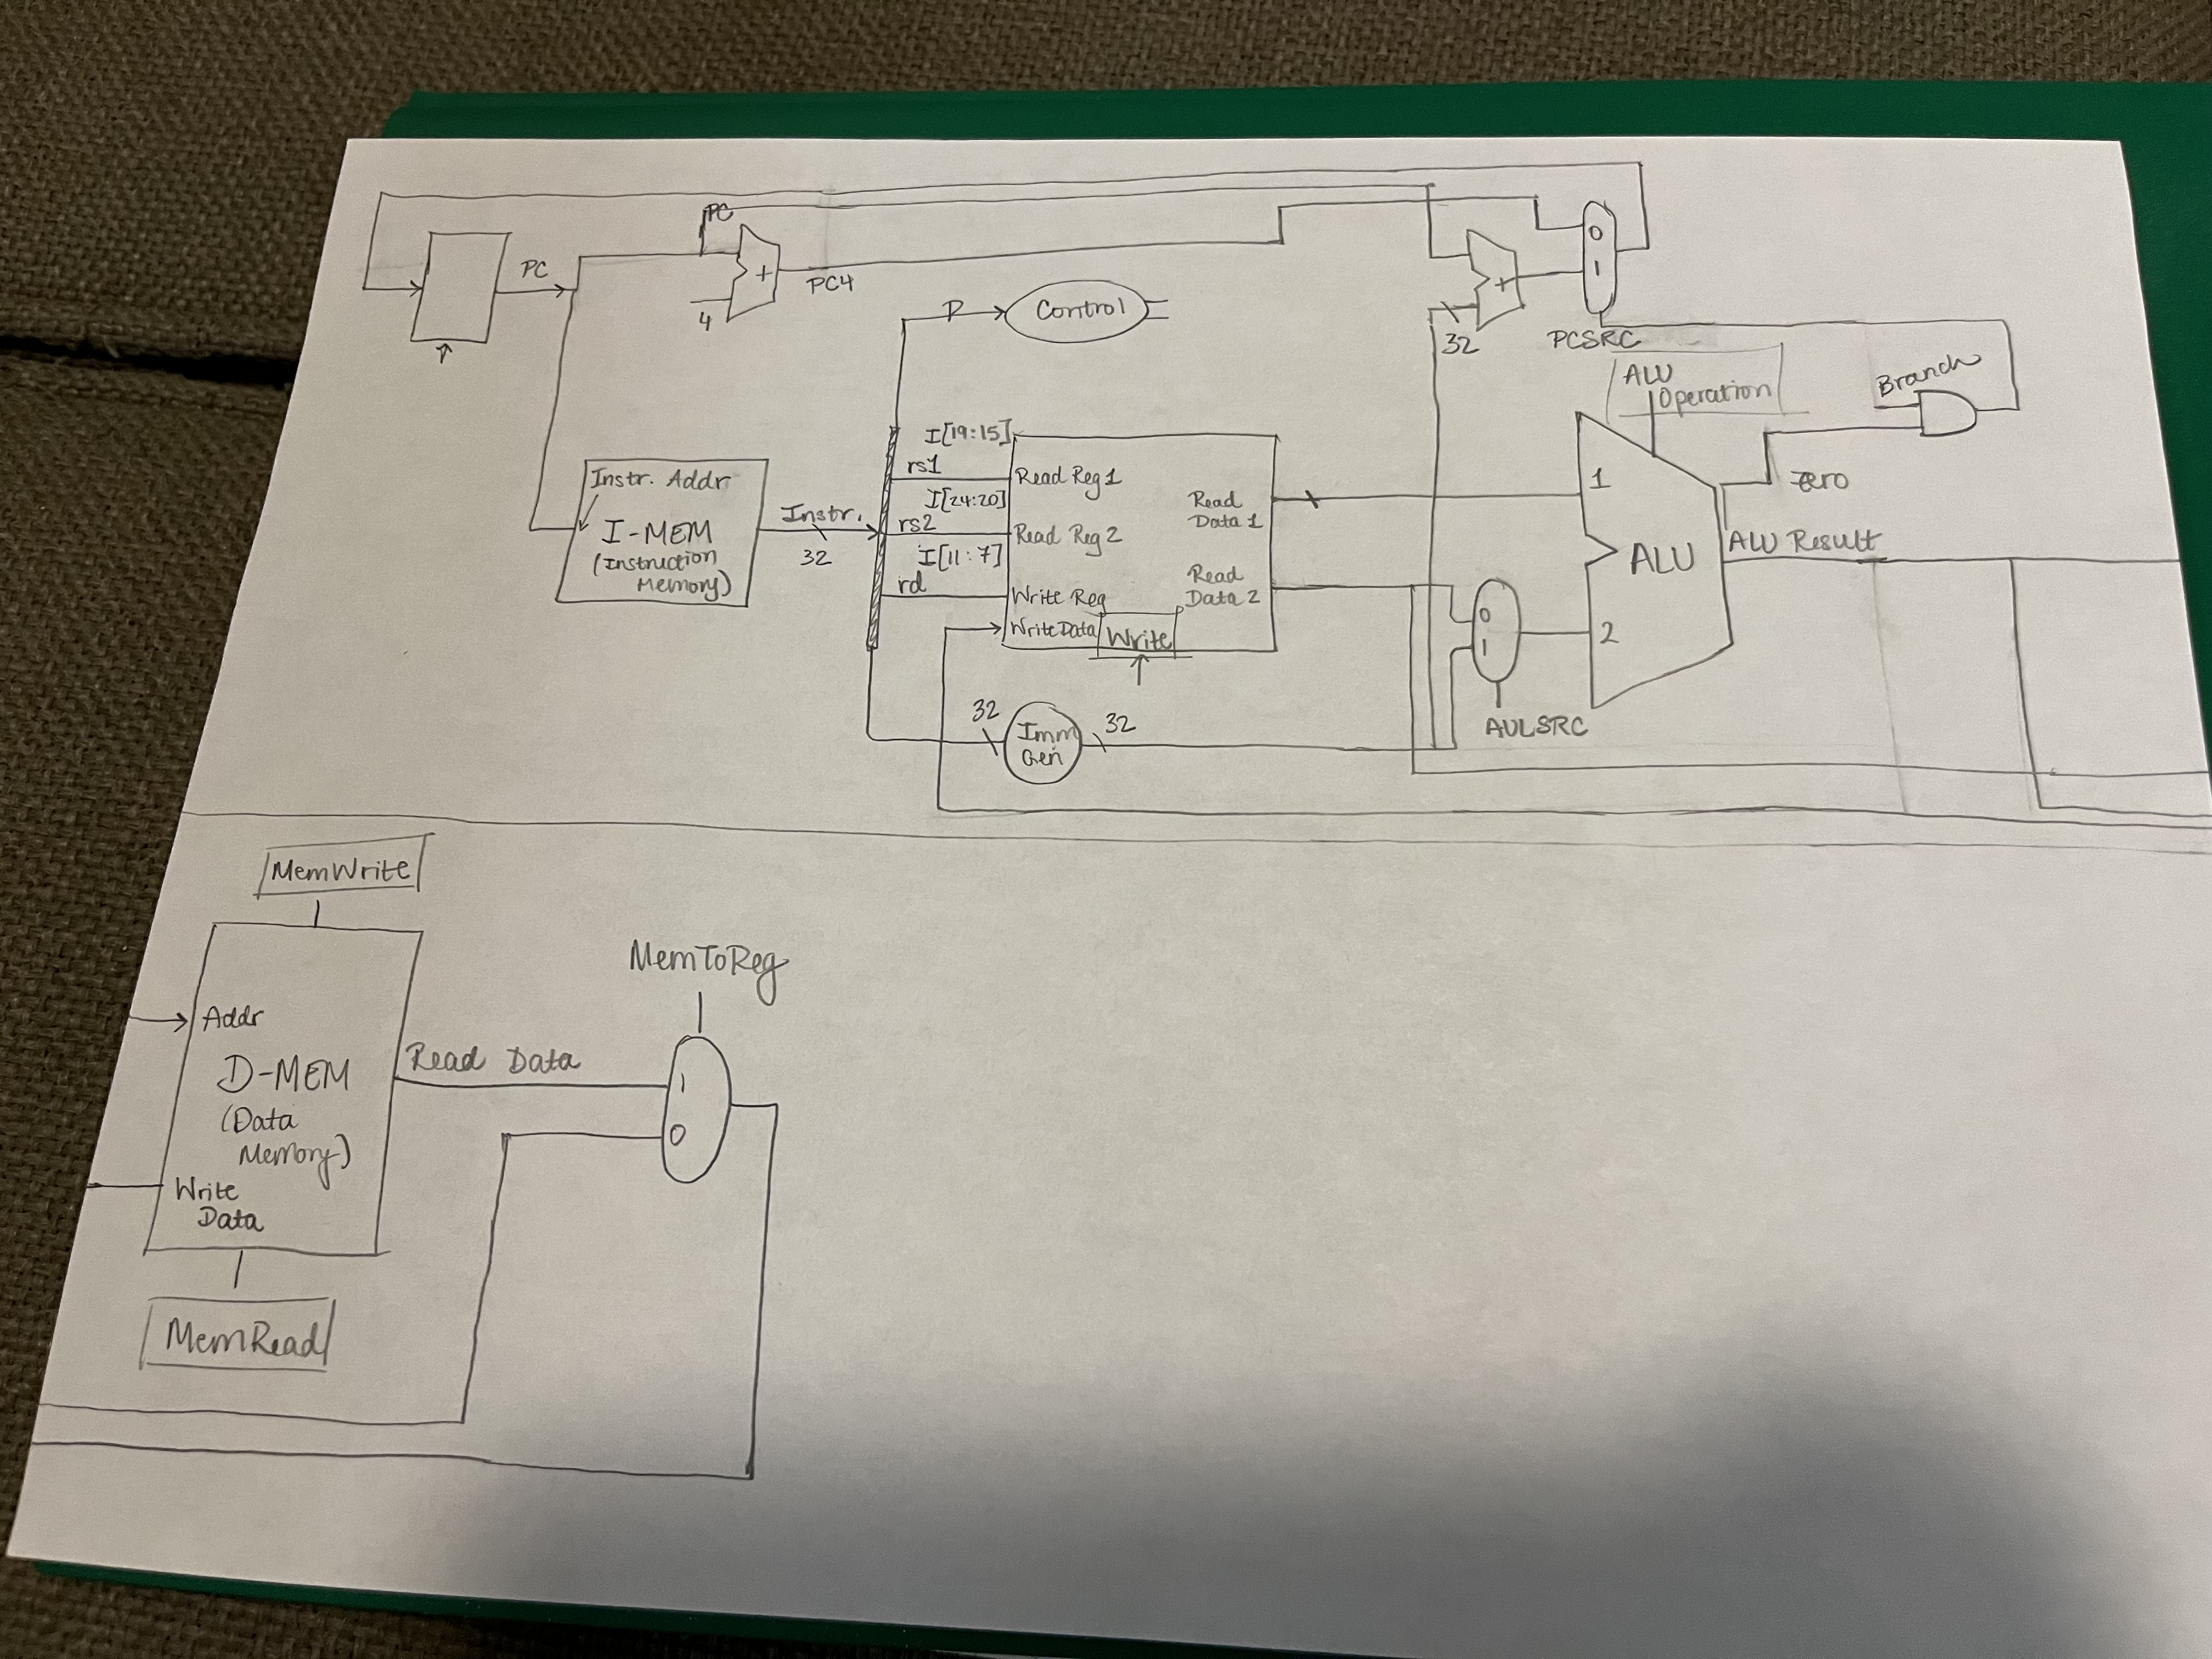 PC
PC
4
+
PC4
Instr. Addr
I-MEM
(Instruction
Memory)
Instr.
32
I[19:15]
rs1
I[24:20]
rs2
I[11:7]
rd
Control
Read Reg 1
Read Reg 2
Write Reg
Write Data
Write
Read
Data 1
Read
Data 2
32
Imm
Gen
32
32
+
0
1
PCSRC
0
1
AULSRC
1
2
ALU
ALU
Operation
Zero
ALU Result
Branch
MemWrite
Addr
D-MEM
(Data
Memory)
Write
Data
Read Data
MemRead
MemToReg
1
0